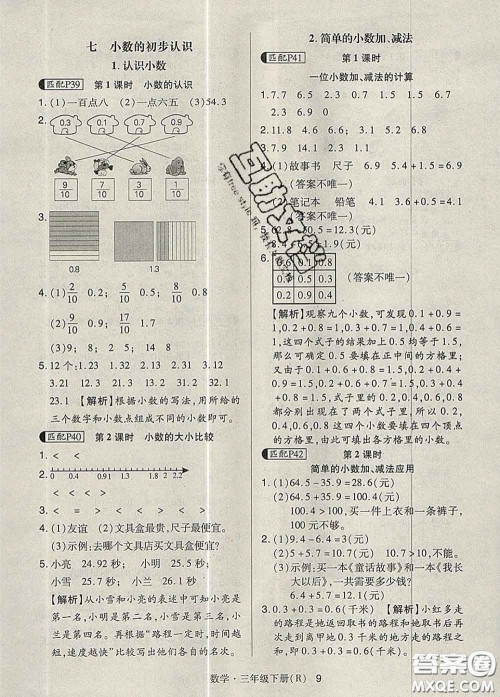 七 小数的初步认识
1. 认识小数
匹配P39 第1课时 小数的认识
1. (1)一百点八 (2)一点六五 (3)54.3
2.
0.3 0.9 0.1 0.7
9/10 7/10 3/10 1/10
3.
0.8 1.3
4. (1) 2/10 0.2; 5/10 0.5
(2) 7/10 0.7; 9/10 0.9
(3)9; 8 2; 4
5. 12个; 1.23 1.32 2.13 2.31
3.12 3.21 12.3 13.2 21.3
23.1 【解析】根据小数的写法,用所给的
三个数字和小数点组成不同的小数即可。
匹配P40 第2课时 小数的大小比较
1. < <
2.
0 0.4 0.9 1.3 1.8 2.2
< < < < >
3. < > < <
4. (1)友谊 (2)文具盒最贵,尺子最便宜。
(3)示例:去美美文具店买文具盒便宜。
5. 小亮 24.92秒; 小明 25.1秒;
小雪 25.7秒; 小兰 26.1秒
【解析】从小雪和小亮的表述中可知小亮是
第一名,小明是第二名,小雪是第三名,小兰
是第四名。再根据“路程一定时,时间越
少成绩越好”比较写出他们各自的成绩。
2. 简单的小数加、减法
匹配P41 第1课时
一位小数加、减法的计算
1. 7.7
2. 11.8 4.6
3. (1)故事书 尺子 6.9
(答案不唯一)
(2)笔记本 铅笔 4.1 3.6+0.5=4.1
(答案不唯一)
6.
0.3 0.5 0.7
0.2 0.9 0.4
(答案不唯一)
【解析】观察九个小数,可发现0.1+0.9=
1,0.2+0.8=1,0.3+0.7=1,0.4+0.6
=1,这四个式子的结果加上0.5均等于1.5,
那么可确定0.5要填在正中间的方格里;
又因为0.1+0.6+0.8=1.5,0.2+0.4+
0.9=1.5,0.2+0.6+0.7=1.5,0.3+
0.4+0.8=1.5,这四个式子中0.2,0.4,
0.6,0.8均出现两次,故0.2,0.4,0.6,0.8
要填在四个角的方格里,再把其余的数填
在合适的方格里即可。
匹配P42 第2课时
简单的小数加、减法应用
1. (1)64.5-35.9=28.6(元)
(2)64.5+35.9=100.4(元)
100.4>100,买一件上衣和一条裤子,
100元不够。
2. (1)9.4-6.4=3(元)
(2)5+5.7=10.7(元) 10.7>10,不能。
(3)示例:买一本《童话故事》和一本《我长
大以后》,一共需要多少钱?
6.4+5.7=12.1(元)
3. 0.3+0.3=0.6(千米) 【解析】小红多走
的路程是她返回取书的路程和她取书后再
次走到离甲地0.3千米的地方走的路程之
和,即0.3+0.3=0.6(千米)。
数学·三年级下册(R) 9
答案圈
MXQE.COM